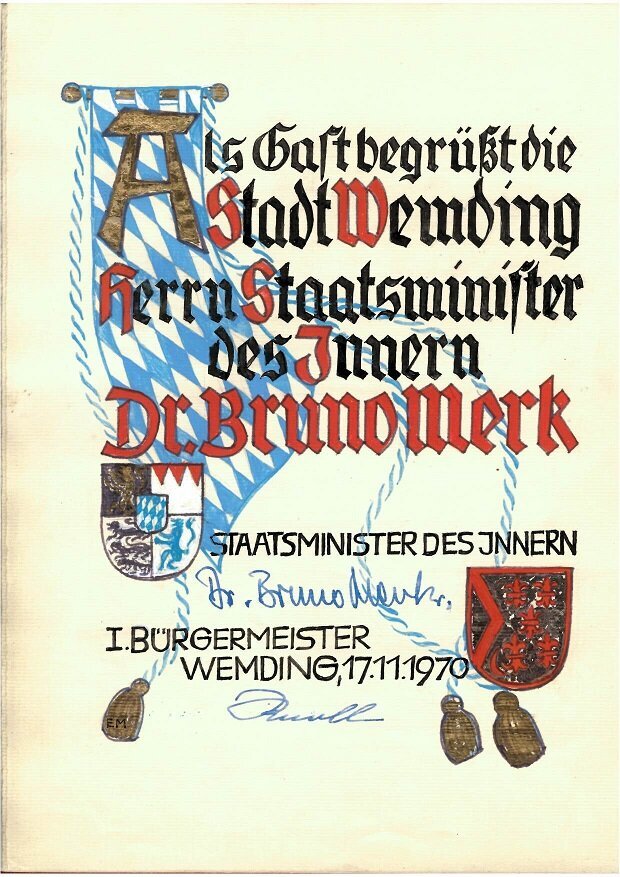 Als Gaſt begrüßt die
Stadt Wemding
Herrn Staatsminiſter
des Innern
Dr. Bruno Merk
STAATSMINISTER DES INNERN
Dr. Bruno Merk.
I. BÜRGERMEISTER
WEMDING, 17.11.1970
EM